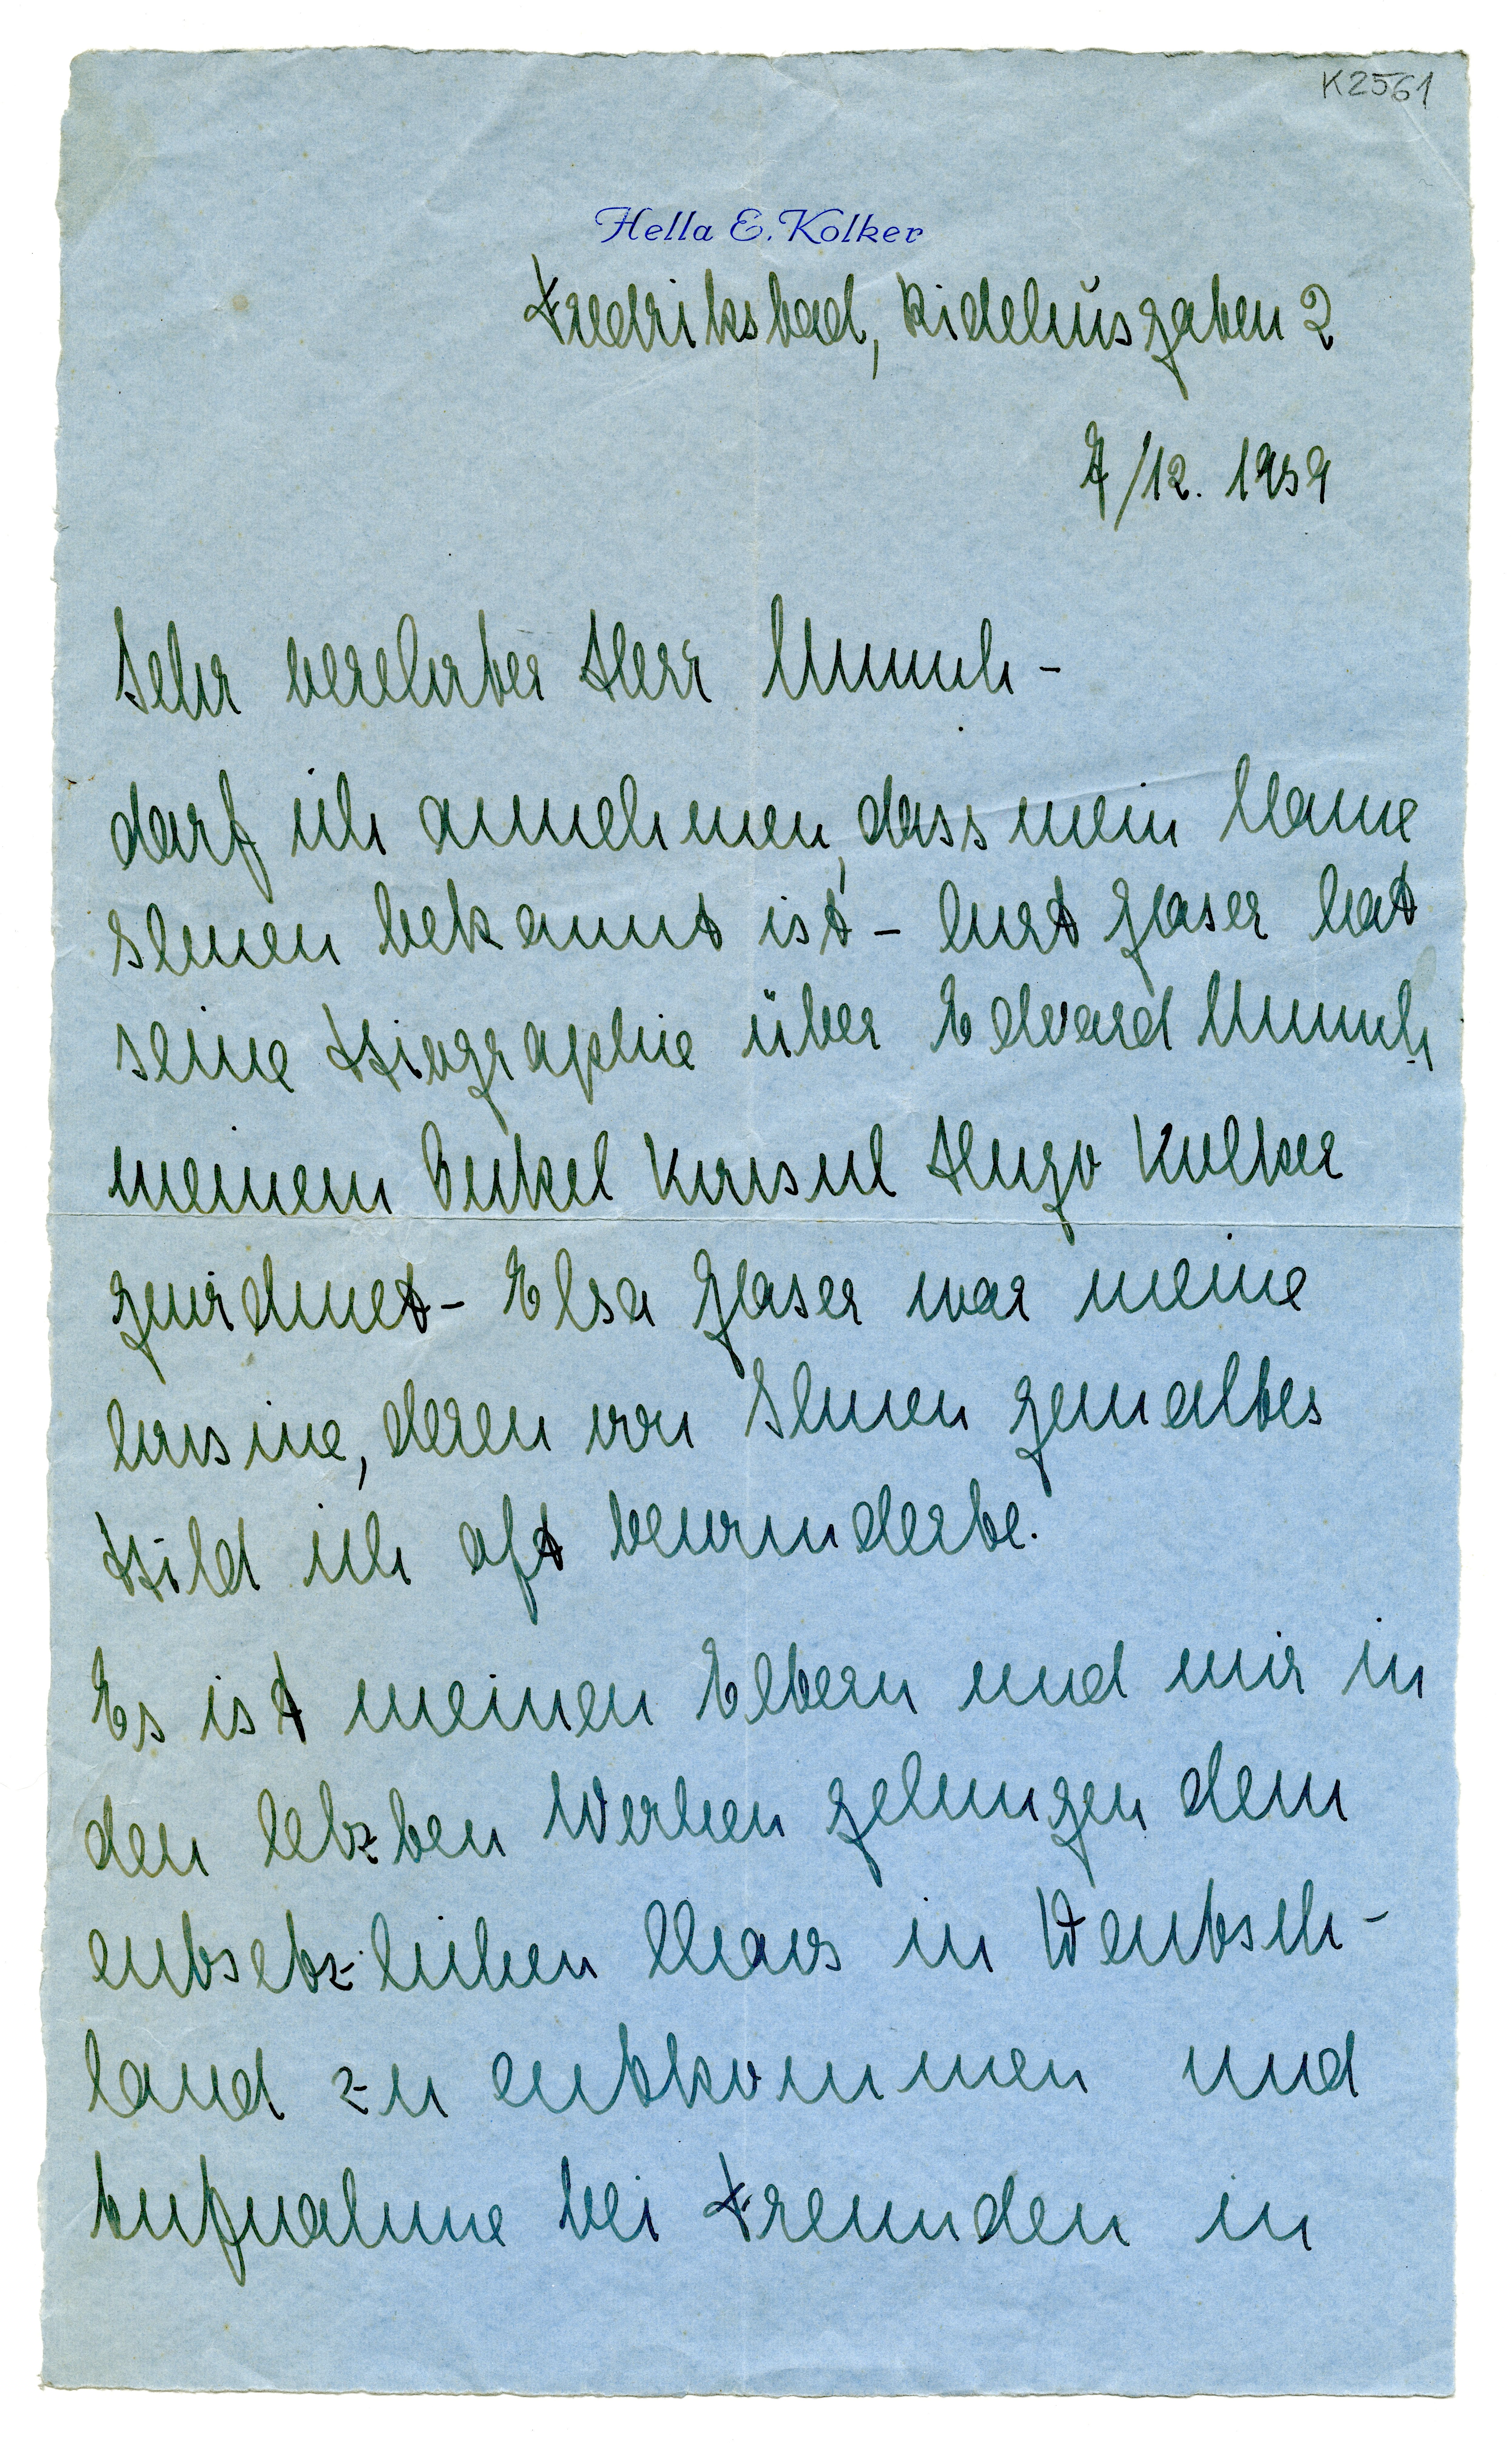 K2561
Hella E. Kolker
Fredrikstad, Ridehusgaten 2
7/12. 1939
Sehr verehrter Herr Munch –
darf ich annehmen, dass mein Name
Ihnen bekannt ist – Curt Glaser hat
seine Biographie über Edvard Munch
meinem Onkel Konsul Hugo Kolker
gewidmet – Elsa Glaser war meine
Cousine, deren von Ihnen gemaltes
Bild ich oft bewunderte.
Es ist meinen Eltern und mir in
den letzten Wochen gelungen dem
entsetzlichen Chaos in Deutsch-
land zu entkommen und
Aufnahme bei Freunden in